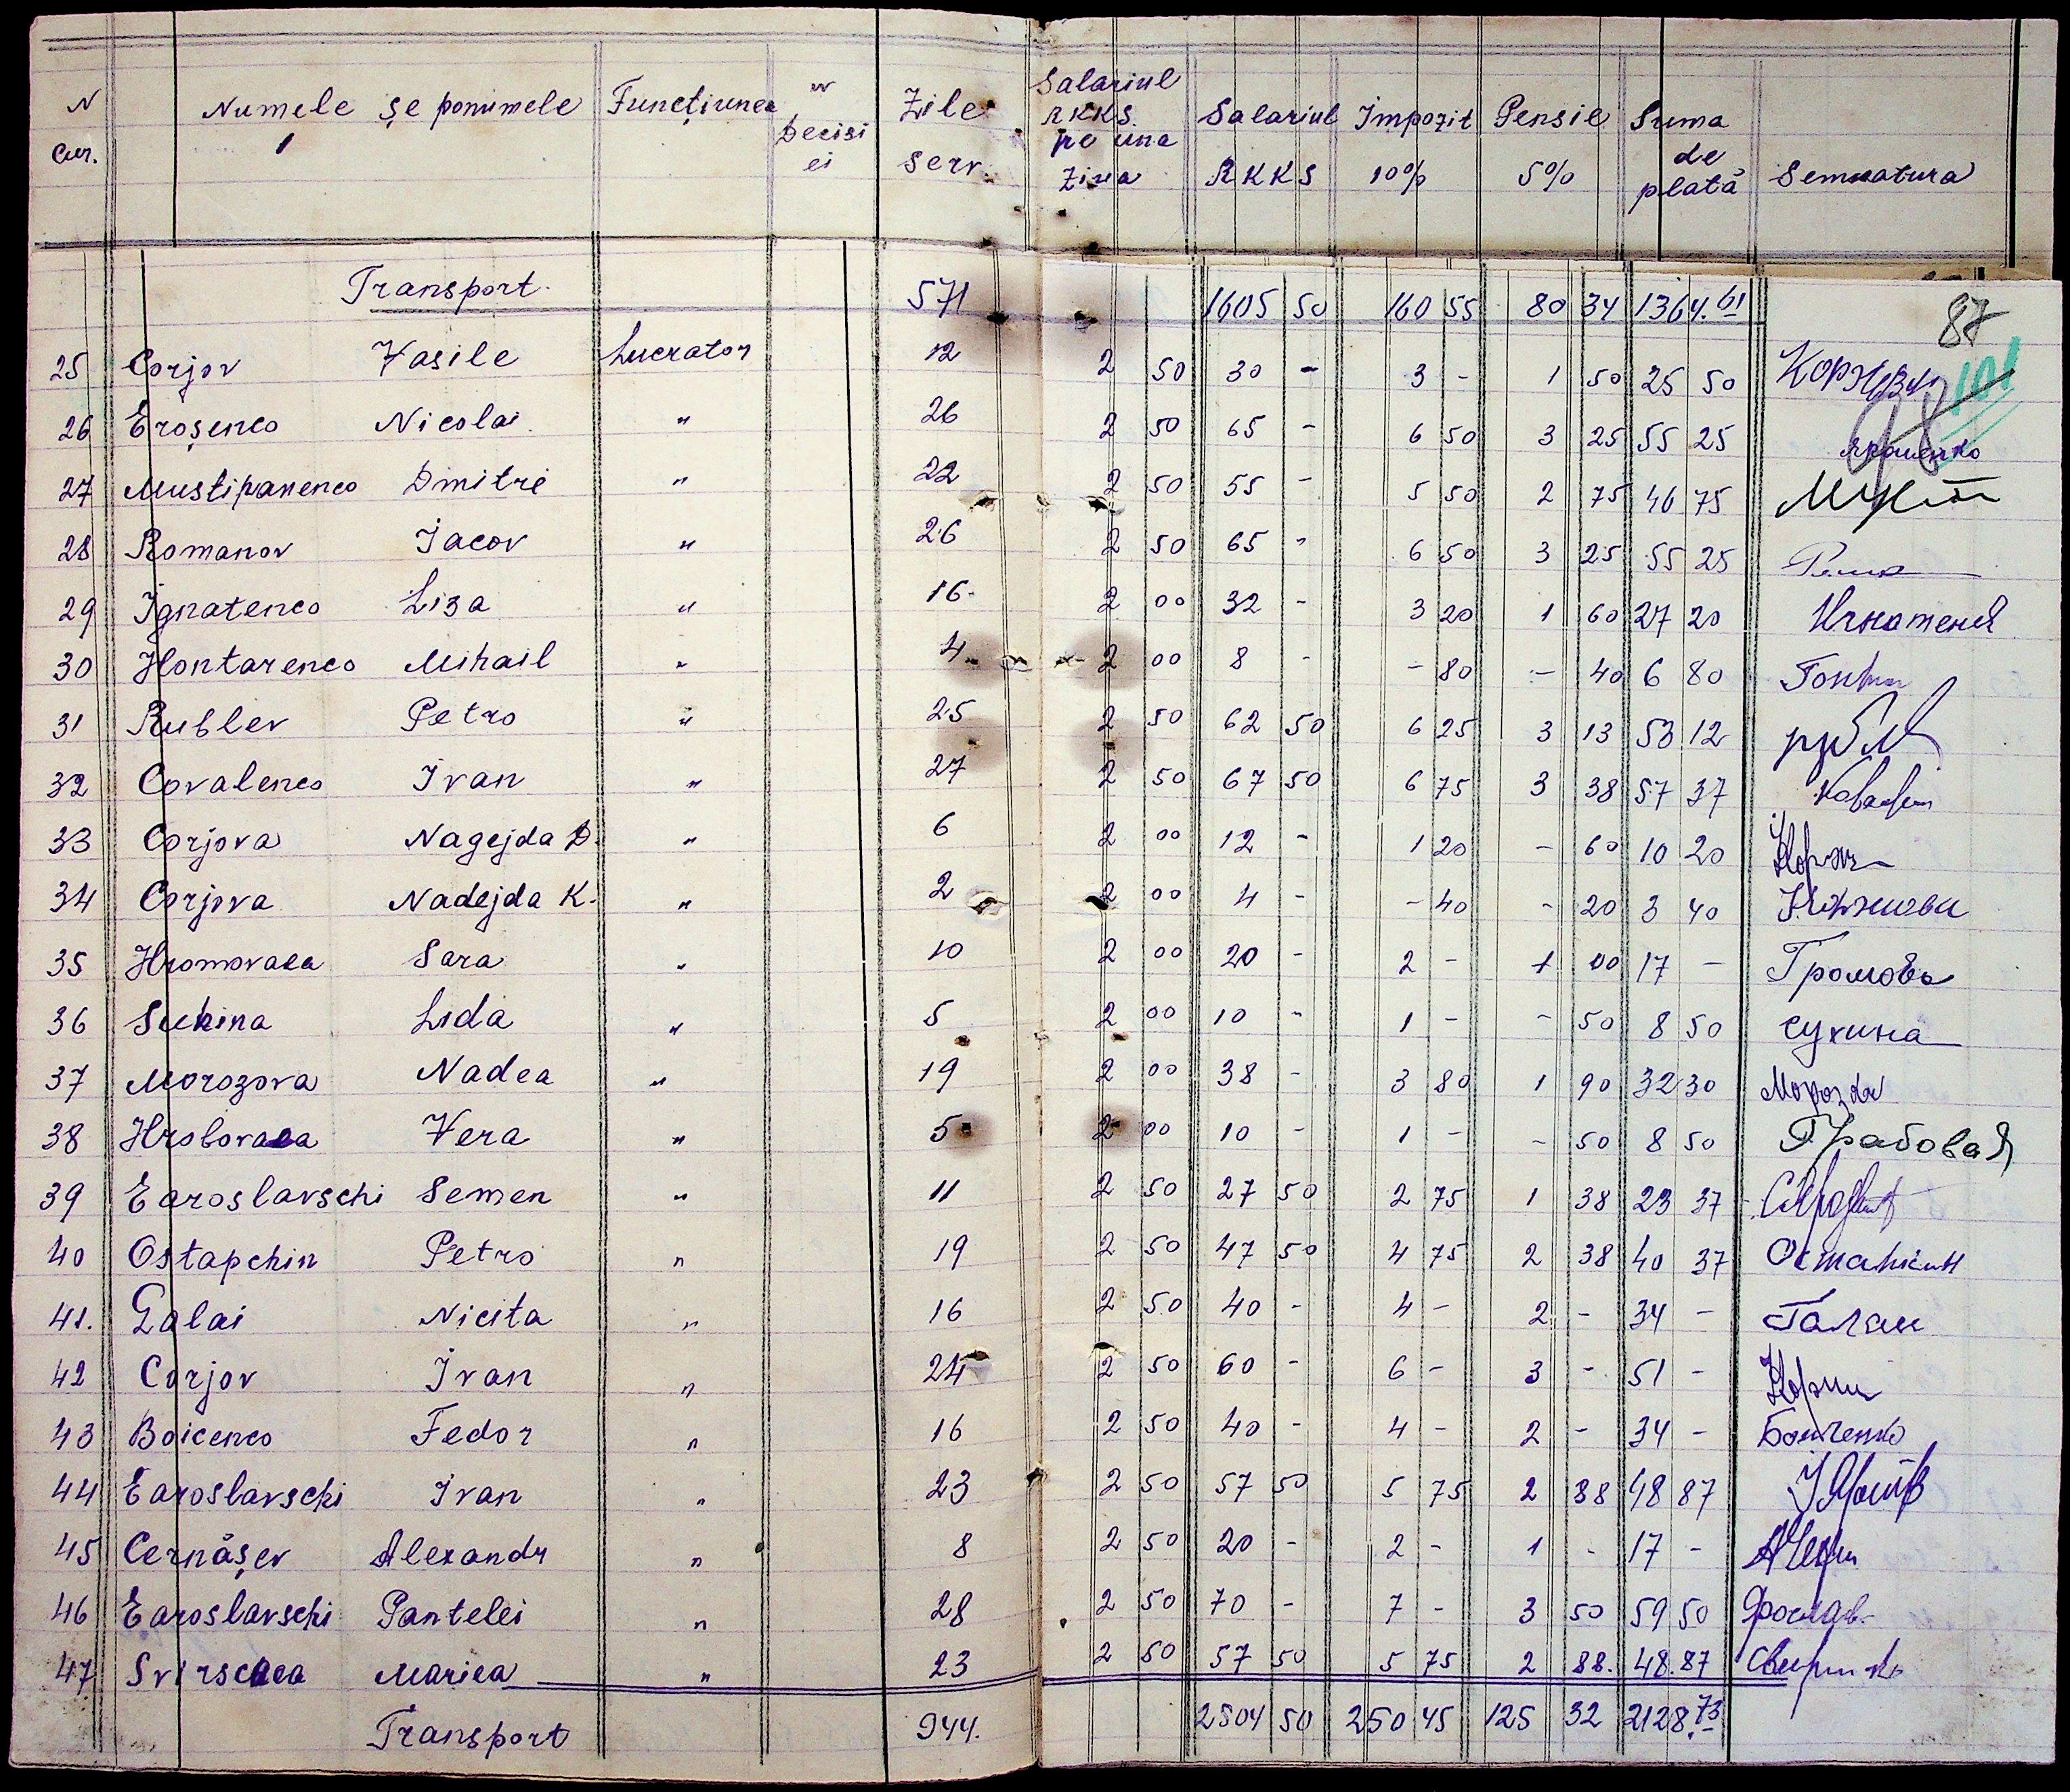 N Cur. Numele și ponumele Funcțiunea № Decisi ei Zile serv. Salariul RKKS. pe una ziua Salariul RKKS Impozit 10% Pensie 5% Suma de plată Semnatura
Transport 571 1605 50 160 55 80 34 1364.61
87
101
98
25 Corjov Vasile Lucrator 12 2 50 30 - 3 - 1 50 25 50
26 Eroșenco Nicolai " 26 2 50 65 - 6 50 3 25 55 25
27 Mustipanenco Dmitri " 22 2 50 55 - 5 50 2 75 46 75
28 Romanov Iacov " 26 2 50 65 - 6 50 3 25 55 25
29 Ignatenco Liza " 16 2 00 32 - 3 20 1 60 27 20
30 Hontarenco Mihail " 4 2 00 8 - - 80 - 40 6 80
31 Rublev Petro " 25 2 50 62 50 6 25 3 13 53 12
32 Covalenco Ivan " 27 2 50 67 50 6 75 3 38 57 37
33 Corjova Nagejda D. " 6 2 00 12 - 1 20 - 60 10 20
34 Corjova Nadejda K. " 2 2 00 4 - - 40 - 20 3 40
35 Hromovaea Sara " 10 2 00 20 - 2 - 1 00 17 - Громова
36 Suhina Lida " 5 2 00 10 - 1 - - 50 8 50 Сухина
37 Morozova Nadea " 19 2 00 38 - 3 80 1 90 32 30
38 Hrobovaea Vera " 5 2 00 10 - 1 - - 50 8 50 Грабовая
39 Earoslavschi Semen " 11 2 50 27 50 2 75 1 38 23 37
40 Ostapchin Petro " 19 2 50 47 50 4 75 2 38 40 37 Остапкин
41. Galai Nicita " 16 2 50 40 - 4 - 2 - 34 -
42 Corjov Ivan " 24 2 50 60 - 6 - 3 - 51 -
43 Boicenco Fedor " 16 2 50 40 - 4 - 2 - 34 -
44 Earoslavschi Ivan " 23 2 50 57 50 5 75 2 88 48 87
45 Cernășev Alexandr " 8 2 50 20 - 2 - 1 - 17 -
46 Earoslavschi Pantelei " 28 2 50 70 - 7 - 3 50 59 50
47 Svirscaea Mariea " 23 2 50 57 50 5 75 2 88. 48.87
Transport 944. 2504 50 250 45 125 32 2128.73